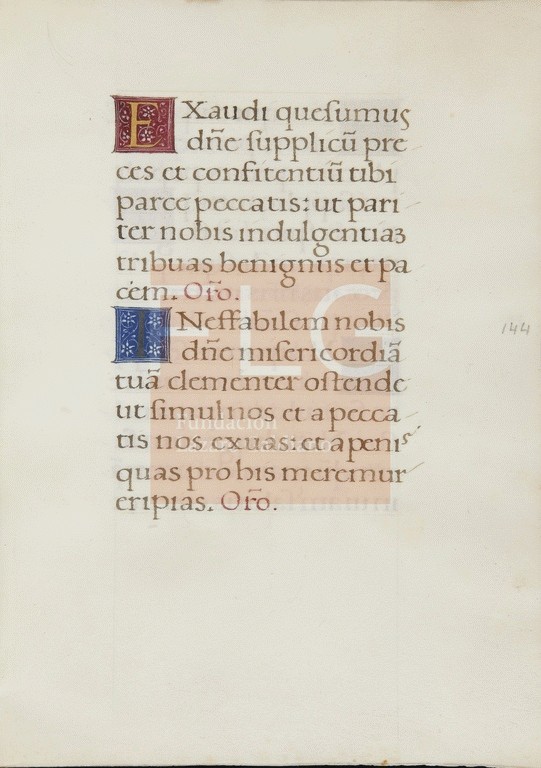 EXaudi quesumus
dn̄e supplicū pre
ces et confitentiū tibi
parce peccatis: ut pari
ter nobis indulgentiaꝫ
tribuas benignus et pa
cem. Or̄o.
INeffabilem nobis
dn̄e misericordiā
tuā clementer ostende
ut simul nos et a pecca
tis nos exuas: et a penis
quas pro bis meremur
eripias. Or̄o.
144
FLG
Fundación